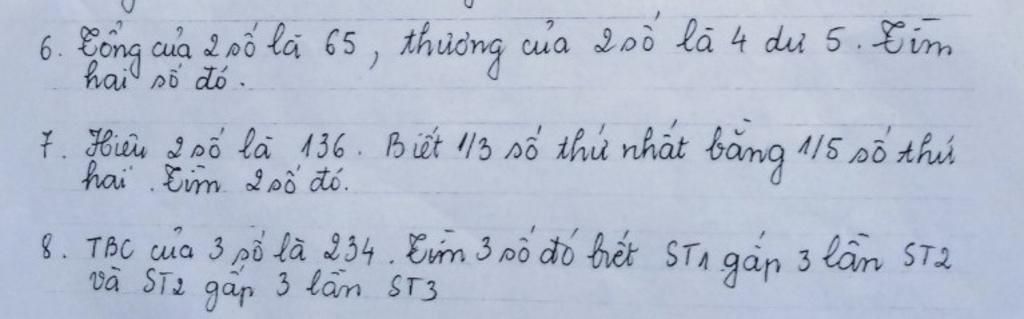 6. Tổng của 2 số là 65, thương của 2 số là 4 dư 5. Tìm
hai số đó.
7. Hiệu 2 số là 136. Biết 1/3 số thứ nhất bằng 1/5 số thứ
hai. Tìm 2 số đó.
8. TBC của 3 số là 234. Tìm 3 số đó biết ST1 gấp 3 lần ST2
và ST2 gấp 3 lần ST3